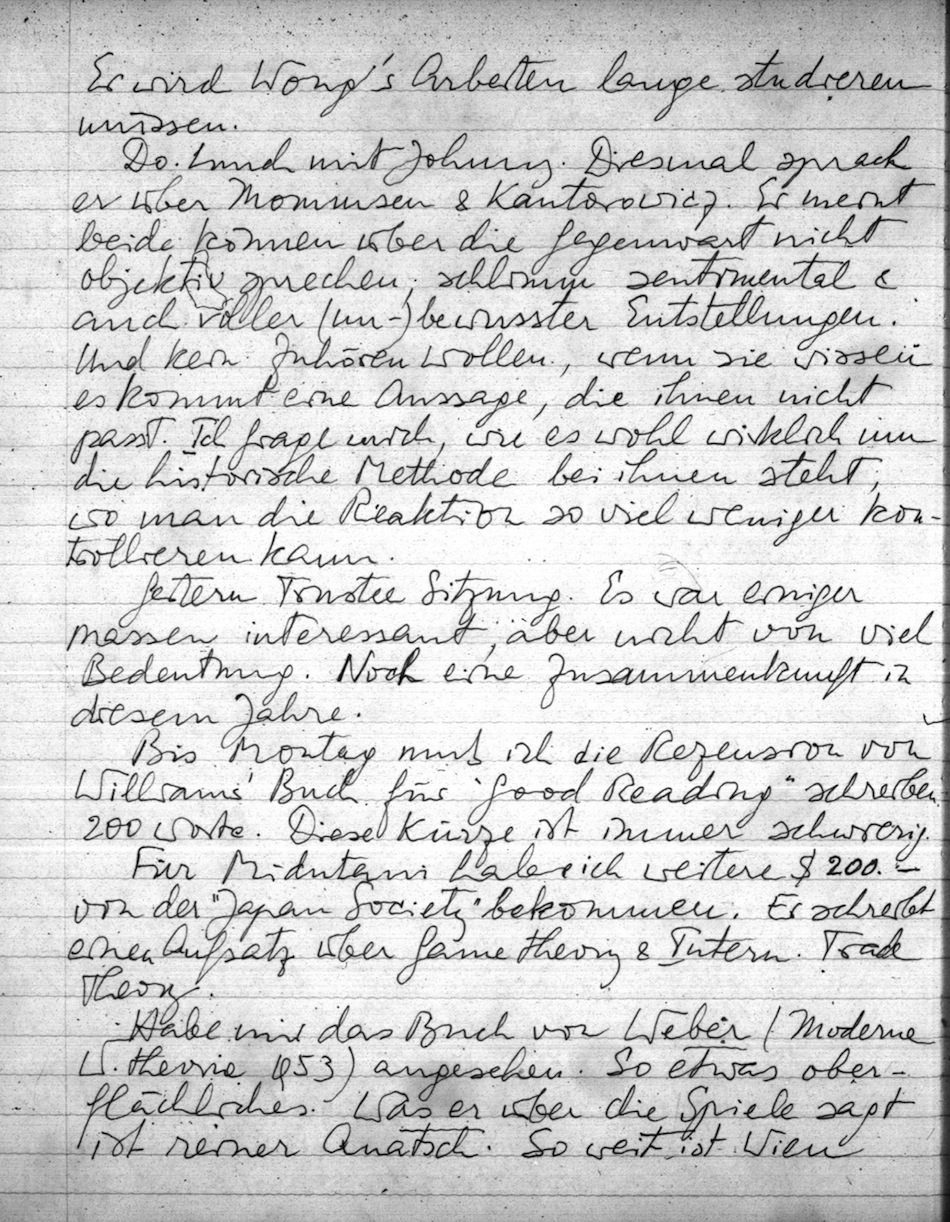 Er wird Wong's Arbeiten lange studieren
müssen.
Do. Lunch mit Johnny. Diesmal sprach
er über Mommsen & Kantorowicz. Er meint
beide können über die Gegenwart nicht
objektiv sprechen, schlimm sentimental &
auch voller (un-)bewusster Entstellungen.
Und kein Zuhören wollen, wenn sie wissen
es kommt eine Aussage, die ihnen nicht
passt. Ich frage mich, wie es wohl wirklich um
die historische Methode bei ihnen steht,
wo man die Reaktion so viel weniger kon-
trollieren kann.
Gestern Trustee Sitzung. Es war einiger
massen interessant, aber nicht von viel
Bedeutung. Noch eine Zusammenkunft in
diesem Jahre.
Bis Montag muß ich die Rezension von
Williams' Buch für "Good Reading" schreiben,
200 Worte. Diese Kürze ist immer schwierig.
Für Midutani habe ich weitere $ 200.–
von der "Japan Society" bekommen. Er schreibt
einen Aufsatz über Game theory & Intern. Trade
Theory.
Habe mir das Buch von Weber (Moderne
W.theorie 1953) angesehen. So etwas ober-
flächliches. Was er über die Spiele sagt
ist reiner Quatsch. So weit ist Wien